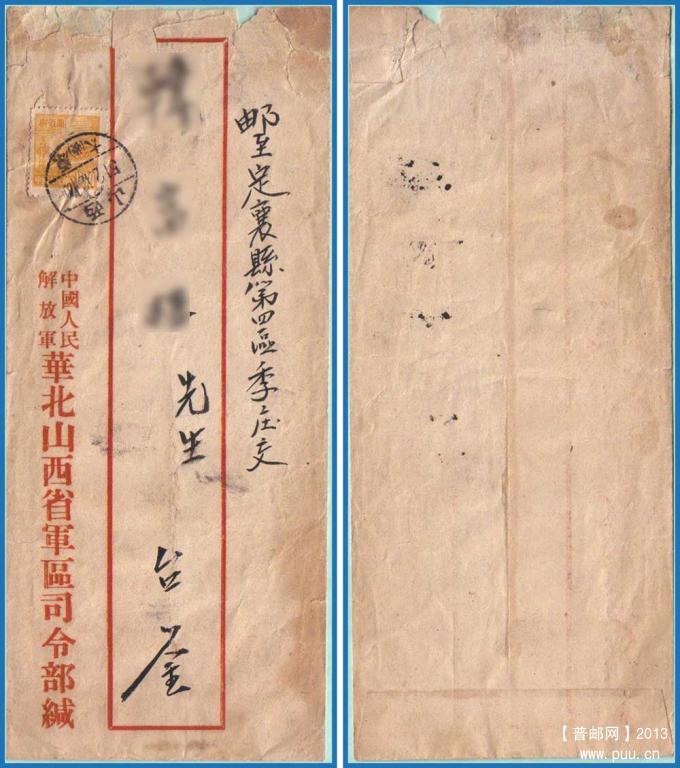 邮至定襄縣第四區季庄交
先生
台鉴
中國人民
解放軍
華北山西省軍區司令部緘
山西
【普邮网】2013
www.puu.cn